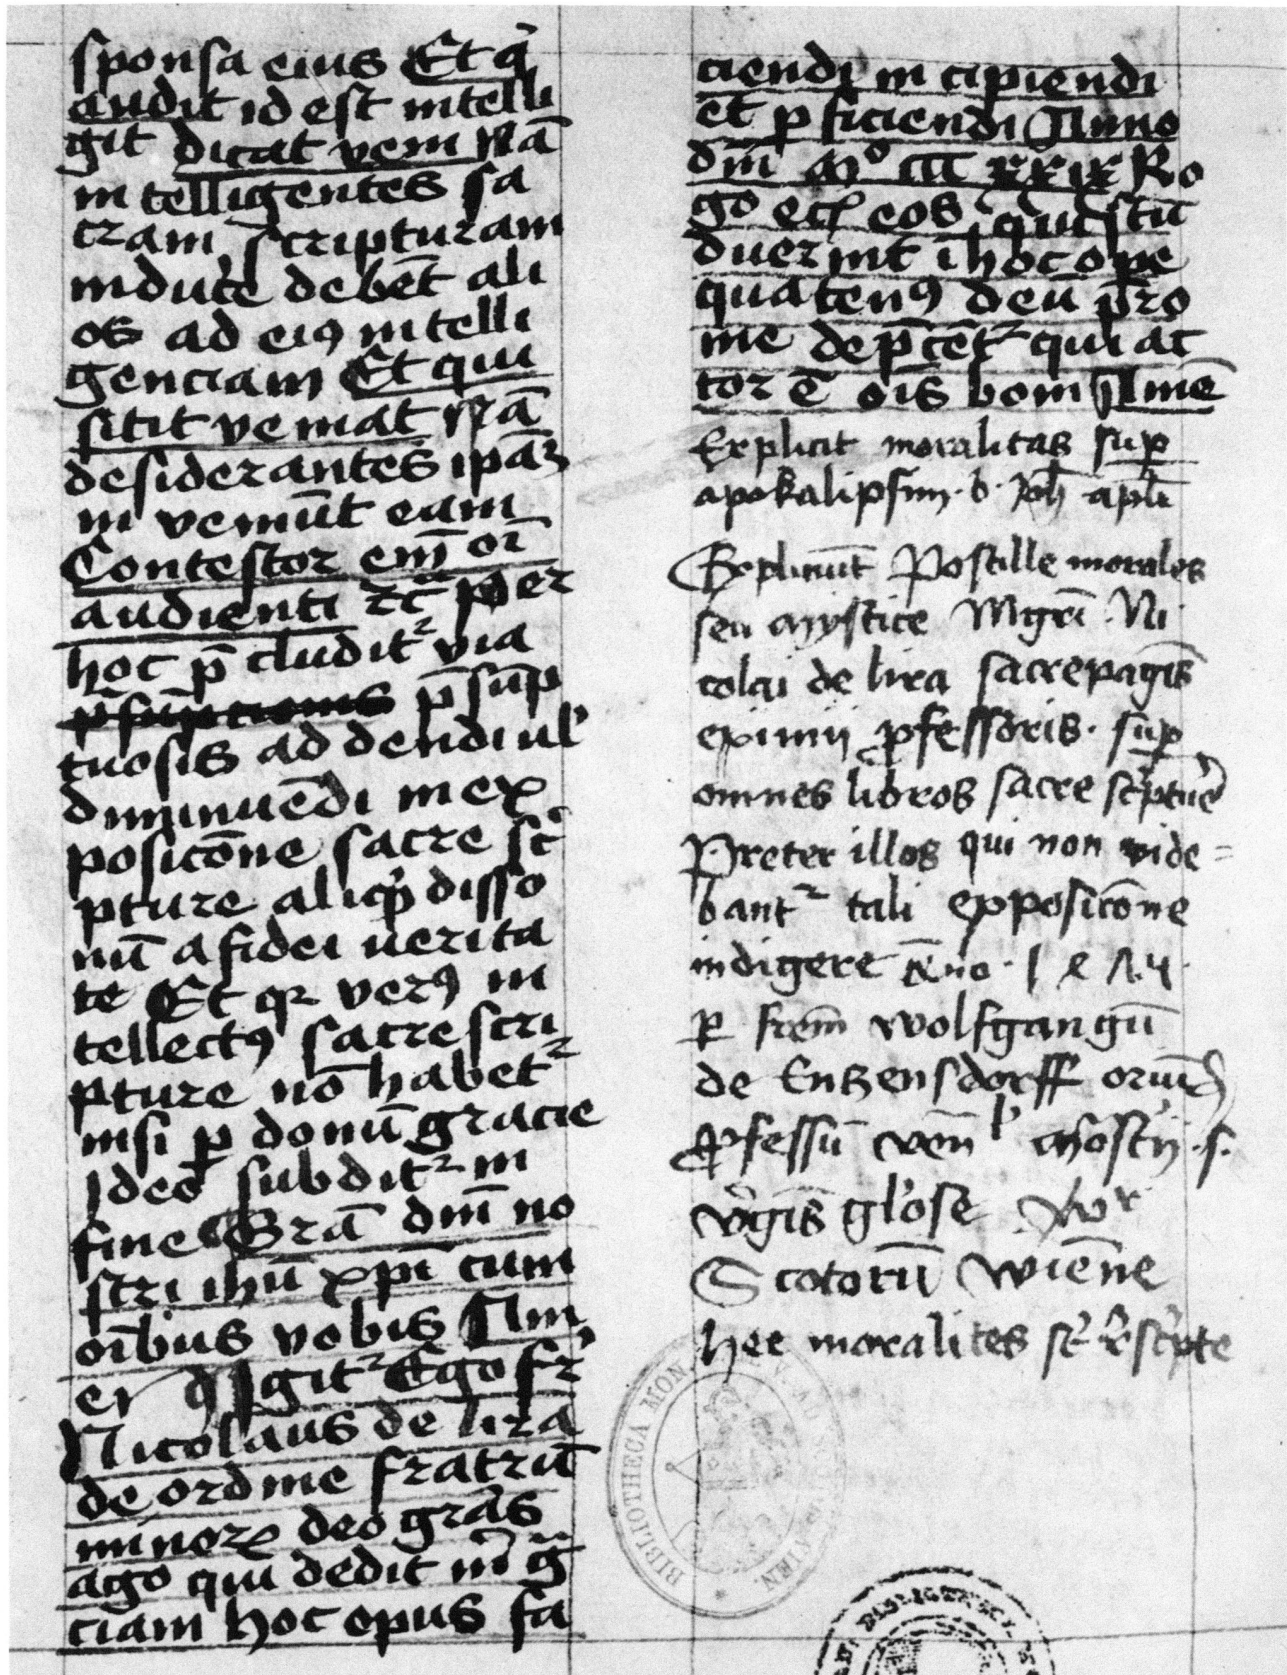 sponsa eius Et q̇
audit id est intelli
git dicat veni Nā
intelligentes sa
cram scripturam
inducere debēt ali
os ad ei⁹ intelli
genciam Et qui
sitit veniat Nā
desiderantes ipāȝ
inveniūt eam
Contestor em̄ oī
audienti ⁊c̄ per
hoc p̄cludit² via
p̄sūp
tuosis addendi ul'
diminuēdi in ex
posicōne sacre sc̓
pture aliqḋ disso
nū a fidei verita
te Et qꝛ ver⁹ in
tellect⁹ sacre scri
pture nō habet²
nisi ꝑ donū gracie
Ideo subdit² in
fine Grā dm̄ no
stri ihū xpī cum
oībus vobis Am
en Igit² Ego fr̄
Nicolaus de lira
de ordine fratrū
minorꝝ deo grās
ago qui dedit m̄ g̃
ciam hoc opus fa
ciendi incipiendi
et ꝑficiendi Anno
dm̄ Mº ccc xxxix Ro
go eos qui stu
duerint ī hoc oꝑe
quaten⁹ deū pro
me dep̄cēt² qui ac
tor ē oīs boni Amē
Explicit moralitas suꝑ
apokalipsim · b · Joh̄ apl̄i
Expliciūt Postille morales
seu mystice Mgrī · Ni
colai de lira sacre pagīs
eximij ꝓfessoris · suꝑ
omnes libros sacre sc̓ptur̓e
Preter illos qui non vide =
bant² tali exposicōne
indigere Āno · 1 4
ꝑ frem̄ wolfgangū
de Entzensdorff
ꝓfessū mostīj · s ·
v̓gīs glōse
Scotorū wiēne
hee moralites st̄ sc̓pte
BIBLIOTHECA MON